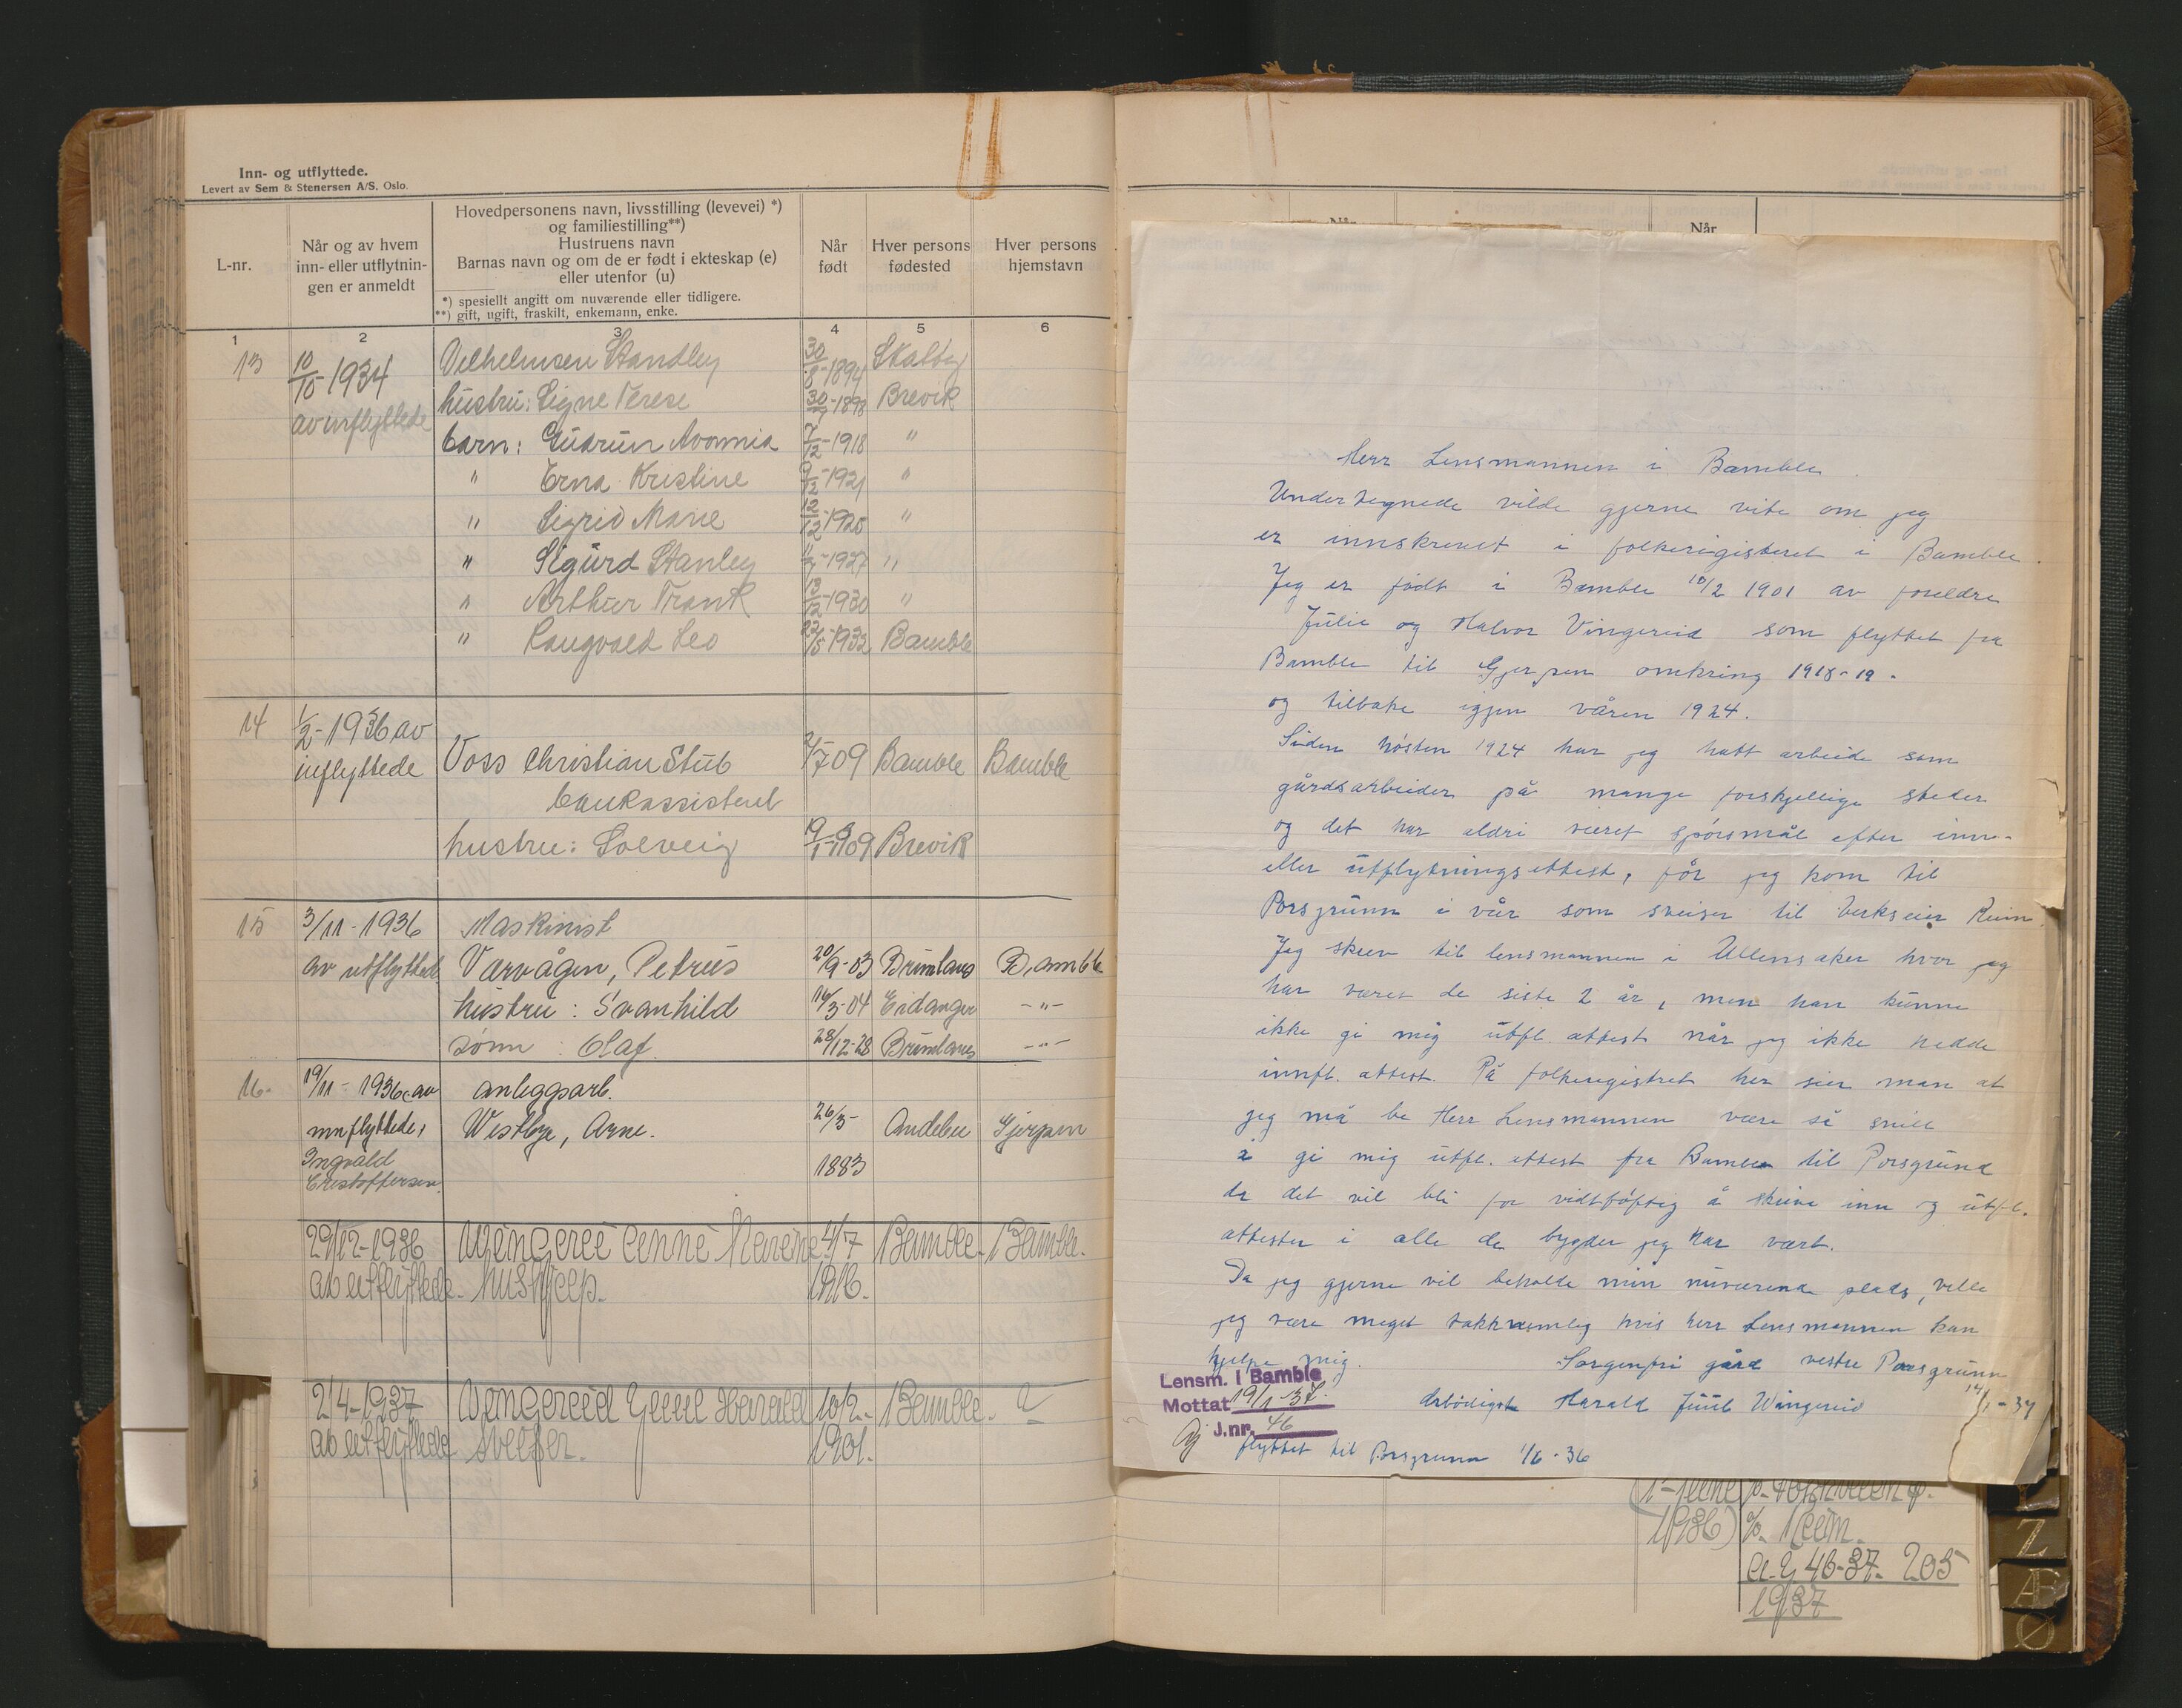 Inn- og utflyttede.
Levert av Sem & Stenersen A/S. Oslo.
L-nr.
Når og av hvem
inn- eller utflytnin-
gen er anmeldt
Hovedpersonens navn, livsstilling (levevei) *)
og familiestilling**)
Hustruens navn
Barnas navn og om de er født i ekteskap (e)
eller utenfor (u)
*) spesiellt angitt om nuværende eller tidligere.
**) gift, ugift, fraskilt, enkemann, enke.
Når
født
Hver persons
fødested
Hver persons
hjemstavn
1 2 3 4 5 6
13 10/10-1934 Vilhelmsen Standley 30/8-1894
hustru: Signe Terese 30/7-1898 Brevik
av innflyttede
barn: Gudrun 7/12-1918 "
" Erna Kristine 9/12-1921 "
" Sigrid Marie 12/12-1925 "
" Sigurd Stanley 1927 "
" Arthur Frank 13/12-1930 "
" Raugvald Leo 22/5-1932 Bamble
14 1/2-1936 av
innflyttede Voss Christian Stub 2/7 09 Bamble Bamble
bankassistent
hustru: Solveig 09 Brevik
15 3/11-1936 Maskinist
av utflyttede Varvågen, Petrus 20/9-03 Brunlanes Bamble
hustru: Svanhild 16/3-04 Eidanger -"-
sønn: Olaf. 28/12-28 Brunlanes -"-
16- 19/11-1936 av anleggsarb.
innflyttede, Westbye, Arne. 26/3- Andebu Gjerpen
Ingvald
Cristoffersen 1883
29/12-1936 Wingereid Marine 4/7 Bamble. Bamble.
av utflyttede- hushjelp. 1916.
2/4-1937 Wingereid Juul Harald 10/2- Bamble.
av utflyttede sveiser. 1901.
Når
Herr Lensmannen i Bamble.
Undertegnede vilde gjerne vite om jeg
er innskrevet i folkerigisteret i Bamble.
Jeg er født i Bamble 10/2 1901 av foreldre
Julie og Halvor Vingereid som flyttet fra
Bamble til Gjerpen omkring 1918-19.
og tilbake igjen våren 1924.
Siden høsten 1924 har jeg hatt arbeide som
gårdsarbeider på mange forskjellige steder
og det har aldri været spørsmål efter inn-
eller utflytningsattest, før jeg kom til
Porsgrunn i vår som sveiser til verkseier Reim.
Jeg skrev til lensmannen i Ullensaker hvor jeg
har været de siste 2 år, men han kunne
ikke gi mig utfl. attest når jeg ikke hadde
innfl. attest. På folkeregistret her sier man at
jeg må be Herr Lensmannen være så snill
å gi mig utfl. attest fra Bamble til Porsgrund
da det vil bli for vidtløftig å skrive inn og utfl.
attester i alle de bygder jeg har vært.
Da jeg gjerne vil beholde min nuværende plads, ville
jeg være meget takknemlig hvis herr Lensmannen kan
hjelpe mig.
Sorgenfri gård vestre Porsgrunn
14/1-37
Ærbødigst Harald Juul Wingereid
Lensm. i Bamble
Mottat 19/1-37.
J.nr. 46
flyttet til Porsgrunn 1/6-36
1936) Reim.
46-37- 205
1937
Z
Æ
Ø